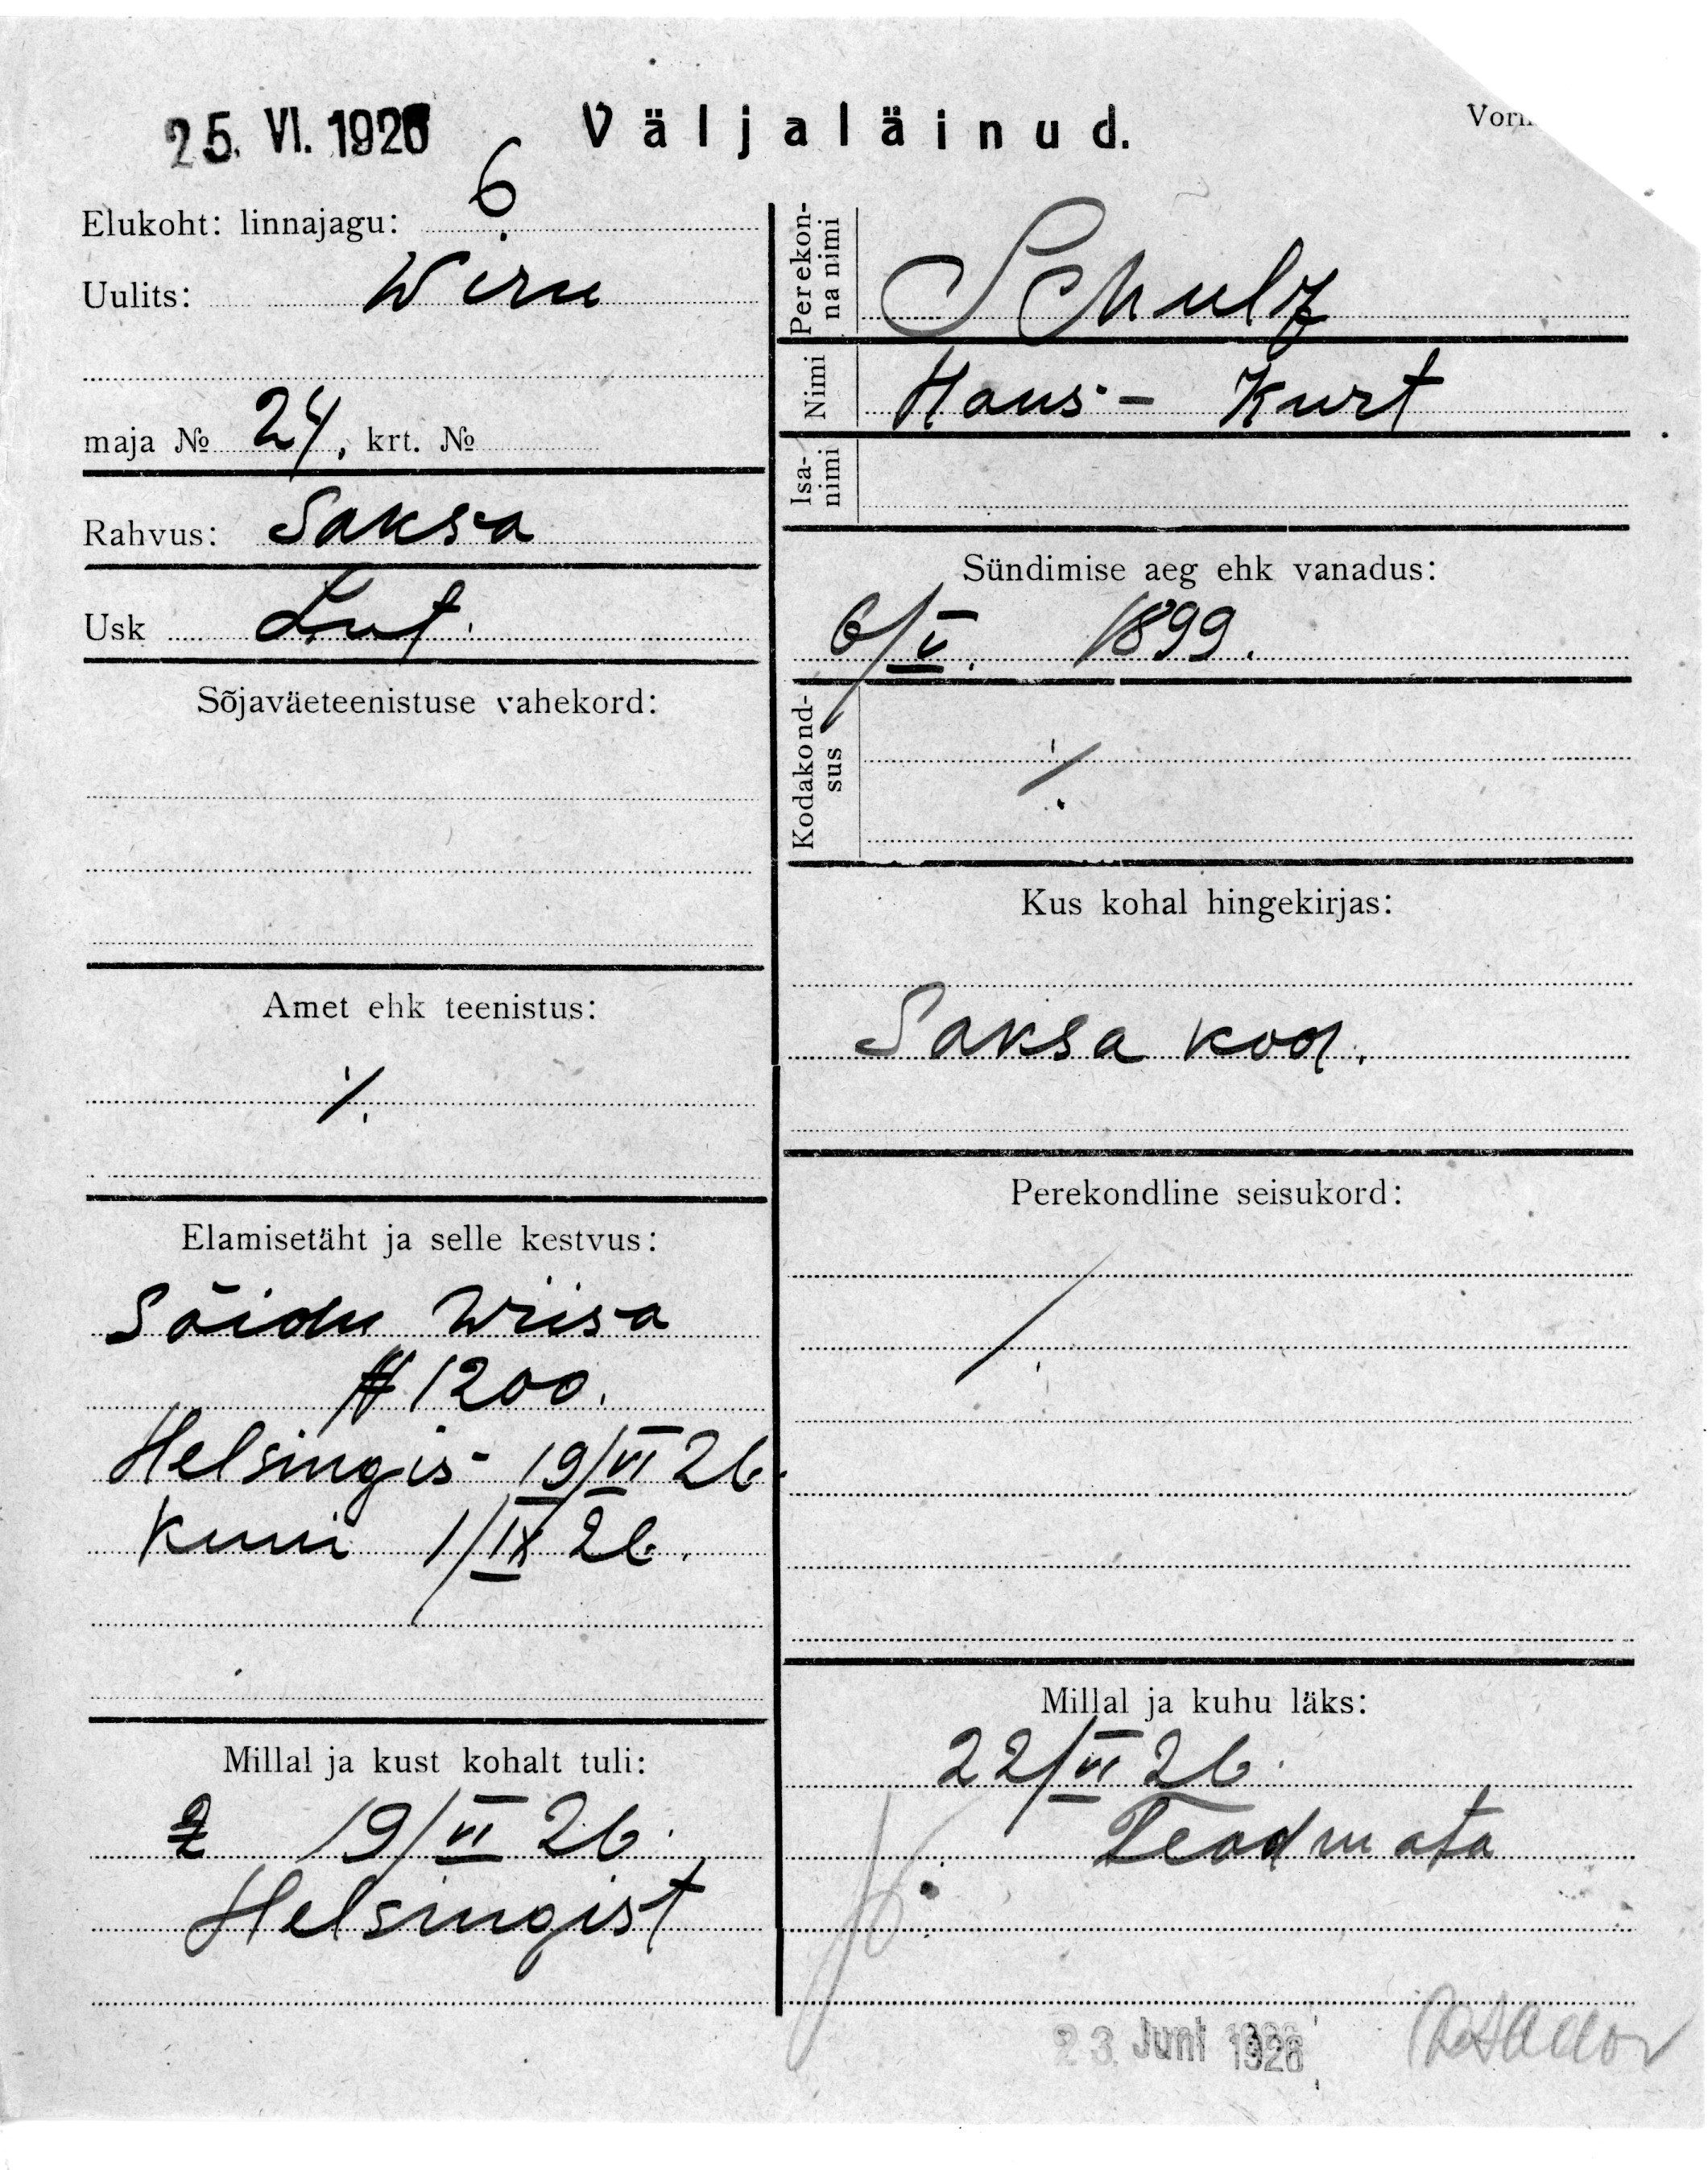 25. VI. 1926
Väljaläinud.
Elukoht: linnajagu: 6
Uulits: Wiru
maja № 24, krt. №
Rahvus: Saksa
Usk Lut.
Sõjaväeteenistuse vahekord:
Amet ehk teenistus:
⁒
Elamisetäht ja selle kestvus:
Sõidu Wiisa
№ 1200.
Helsingis 19/VI 26.
Kuni 1/IX 26.
Millal ja kust kohalt tuli:
19/VI 26.
Helsingist
Perekonna nimi Schulz
Nimi Hans-Kurt
Isanimi
Sündimise aeg ehk vanadus:
6/V. 1899.
Kodakondsus
⁒
Kus kohal hingekirjas:
Saksa kod.
Perekondline seisukord:
⁒
Millal ja kuhu läks:
22/VI 26.
Teadmata
23. Juni 1926